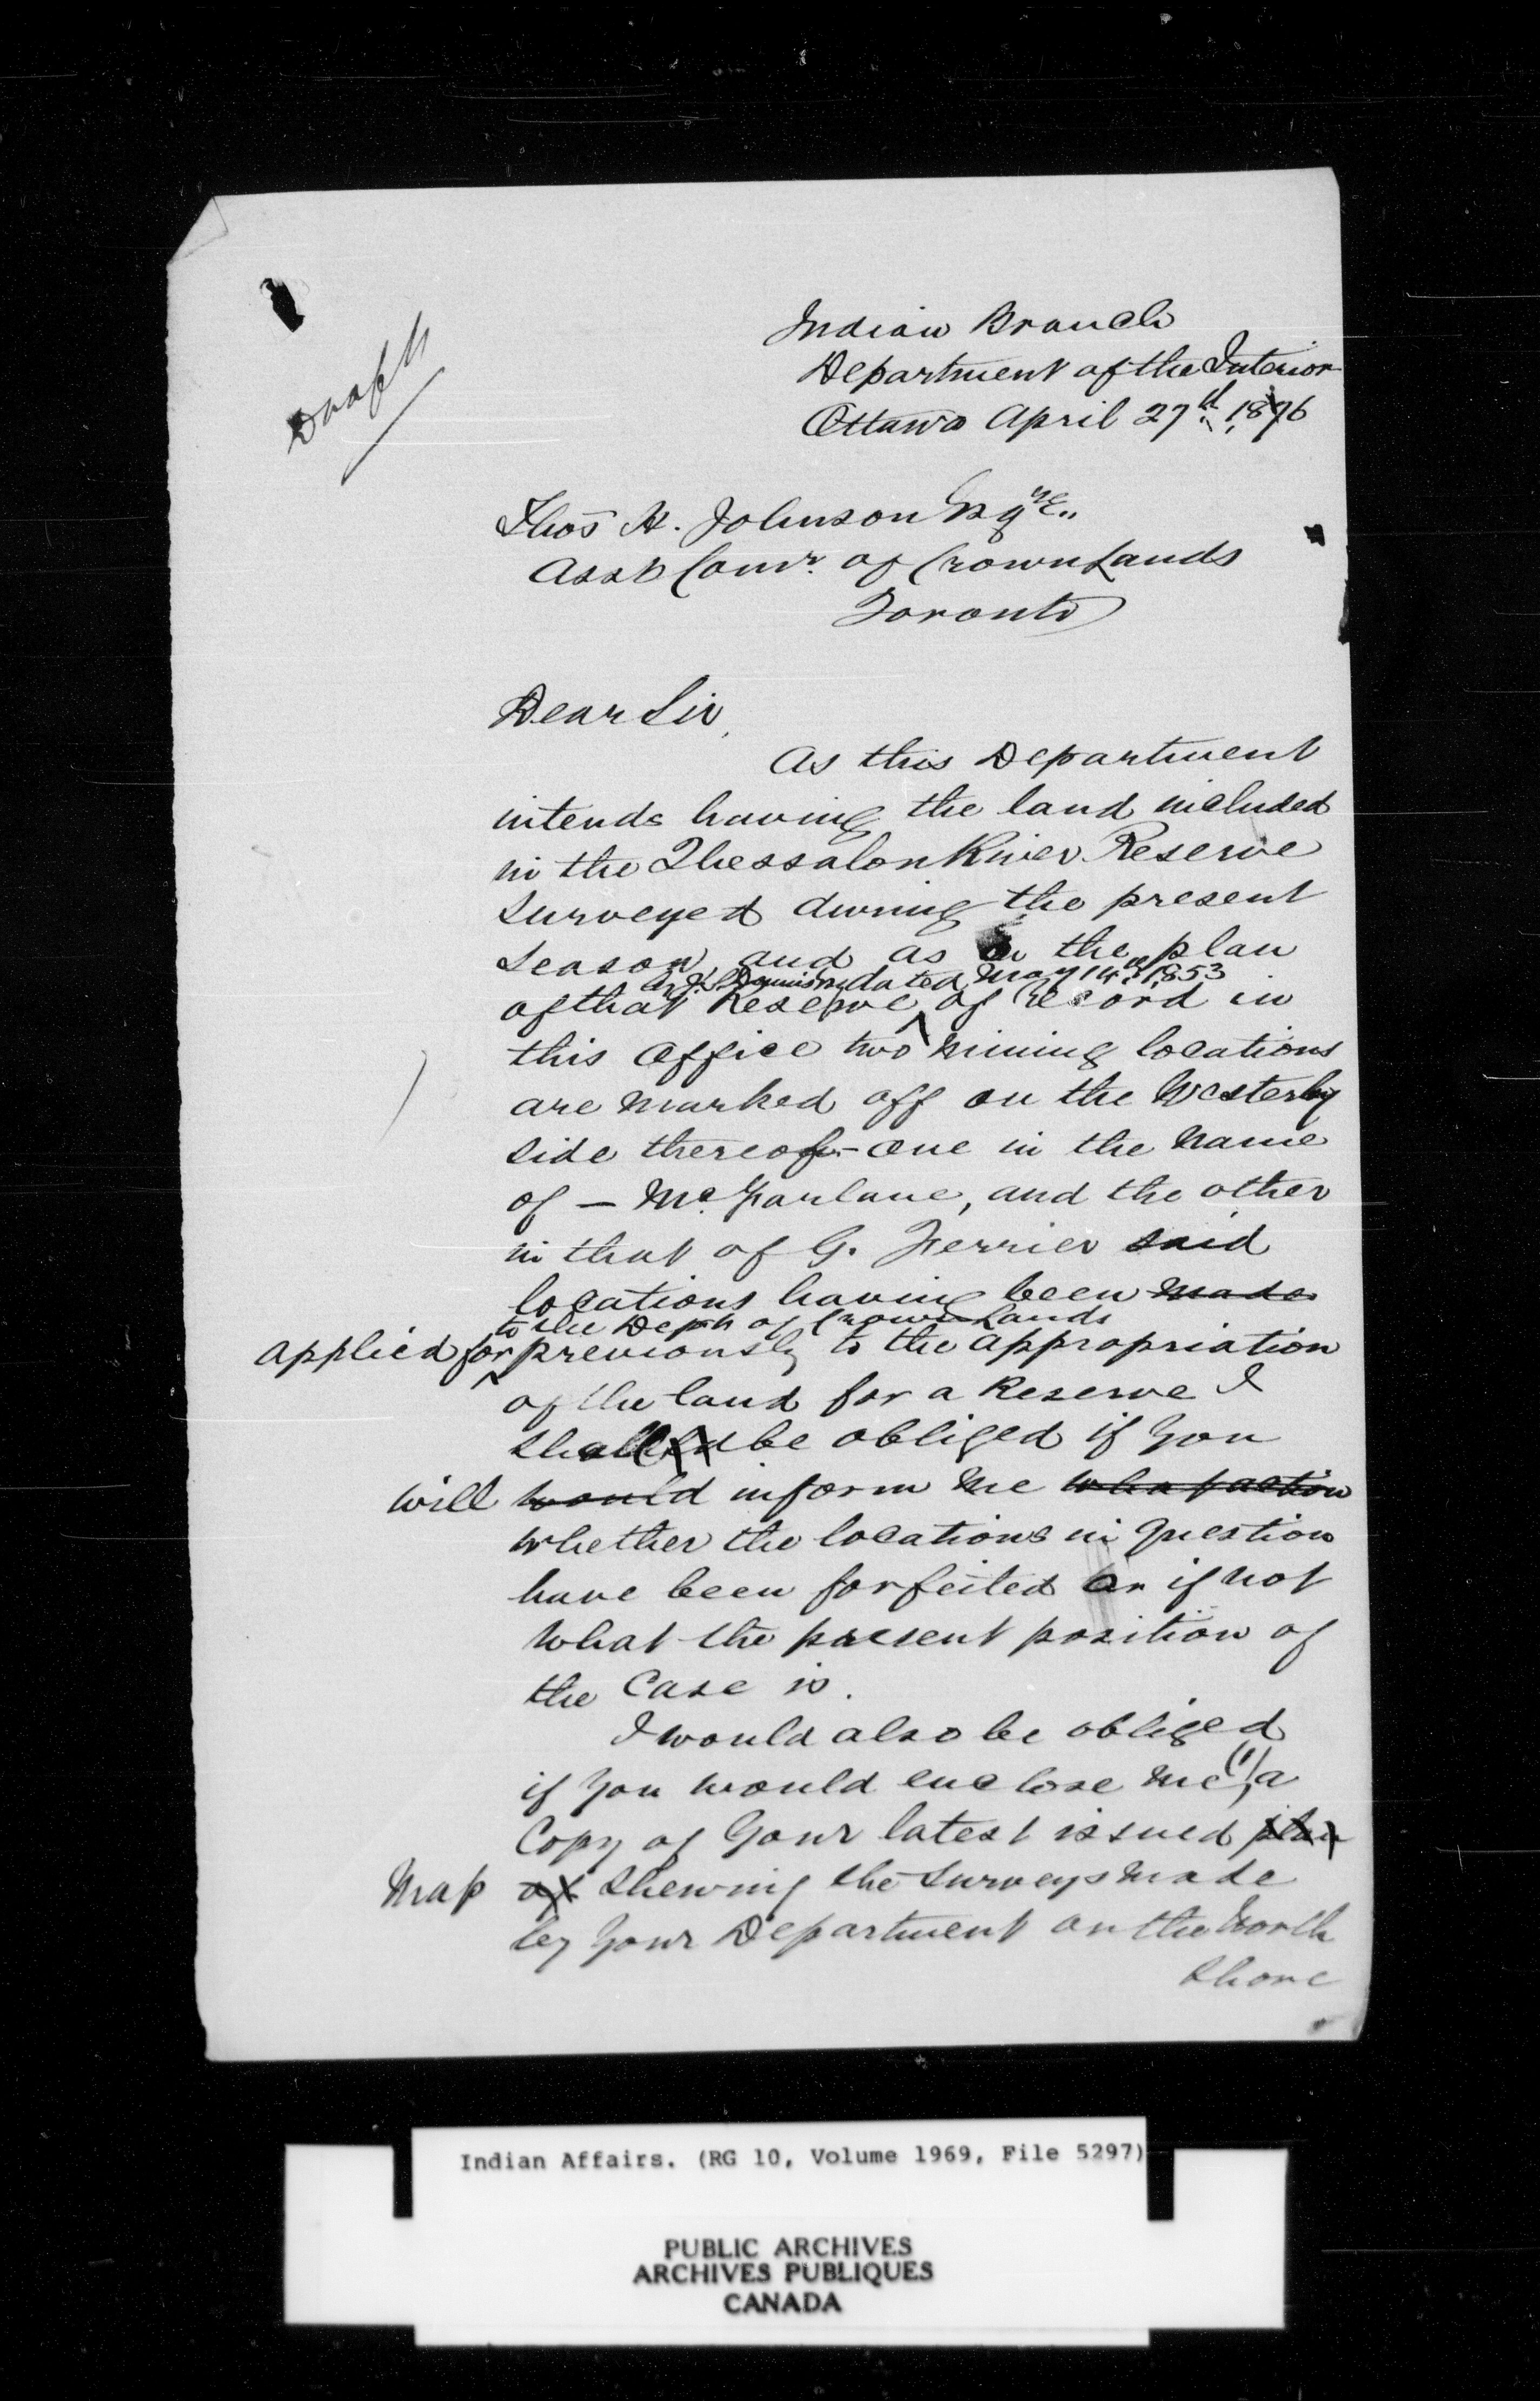 Draft
Indian Branch
Department of the Interior
Ottawa April 27th 1876
Thos H. Johnson Esqre.,
Asst Comr. of Crown Lands
Toronto
Dear Sir,
As this Department
intends having the land included
in the Thessalon River Reserve
Surveyed during the present
Season, and as on the plan
by J. S. Dennis dated May 14th 1853
of that Reserve of record in
this Office two mining locations
are marked off on the Westerly
side thereof - one in the name
of — McFarlane, and the other
in that of G. Ferrier said
locations having been made
to the Dept of Crown Lands
applied for previously to the appropriation
of the land for a Reserve I
shall be obliged if you
will would inform me what action
whether the locations in question
have been forfeited or if not
what the present position of
the Case is.
I would also be obliged
if you would enclose me (1) a
Copy of your latest issued plan
Map of Shewing the Surveys made
by your Department on the North
Shore
Indian Affairs. (RG 10, Volume 1969, File 5297)
PUBLIC ARCHIVES
ARCHIVES PUBLIQUES
CANADA